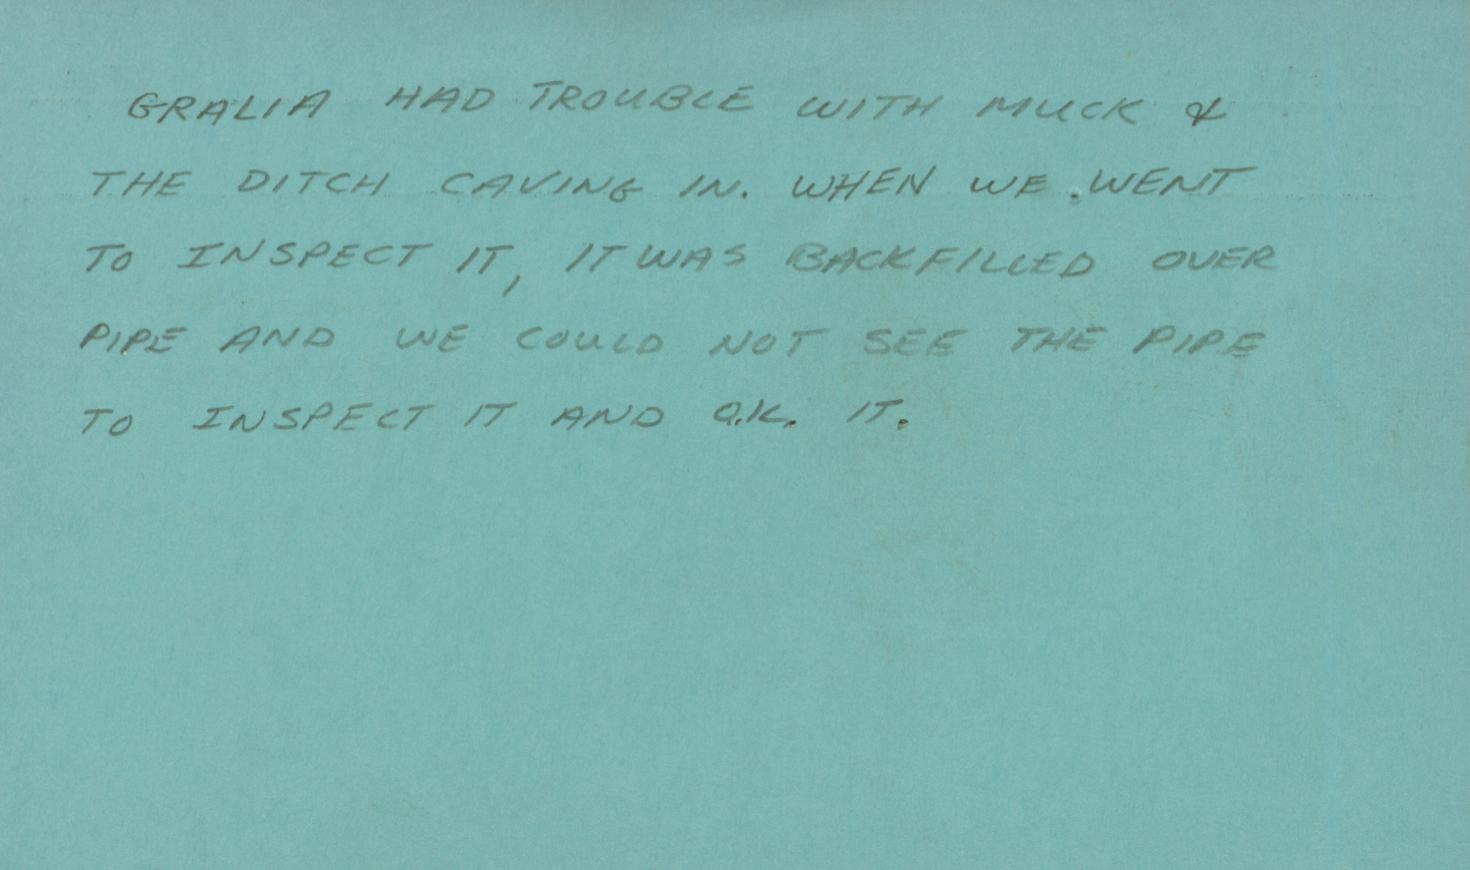 GRALIA HAD TROUBLE WITH MUCK &
THE DITCH CAVING IN. WHEN WE WENT
TO INSPECT IT, IT WAS BACKFILLED OVER
PIPE AND WE COULD NOT SEE THE PIPE
TO INSPECT IT AND O.K. IT.